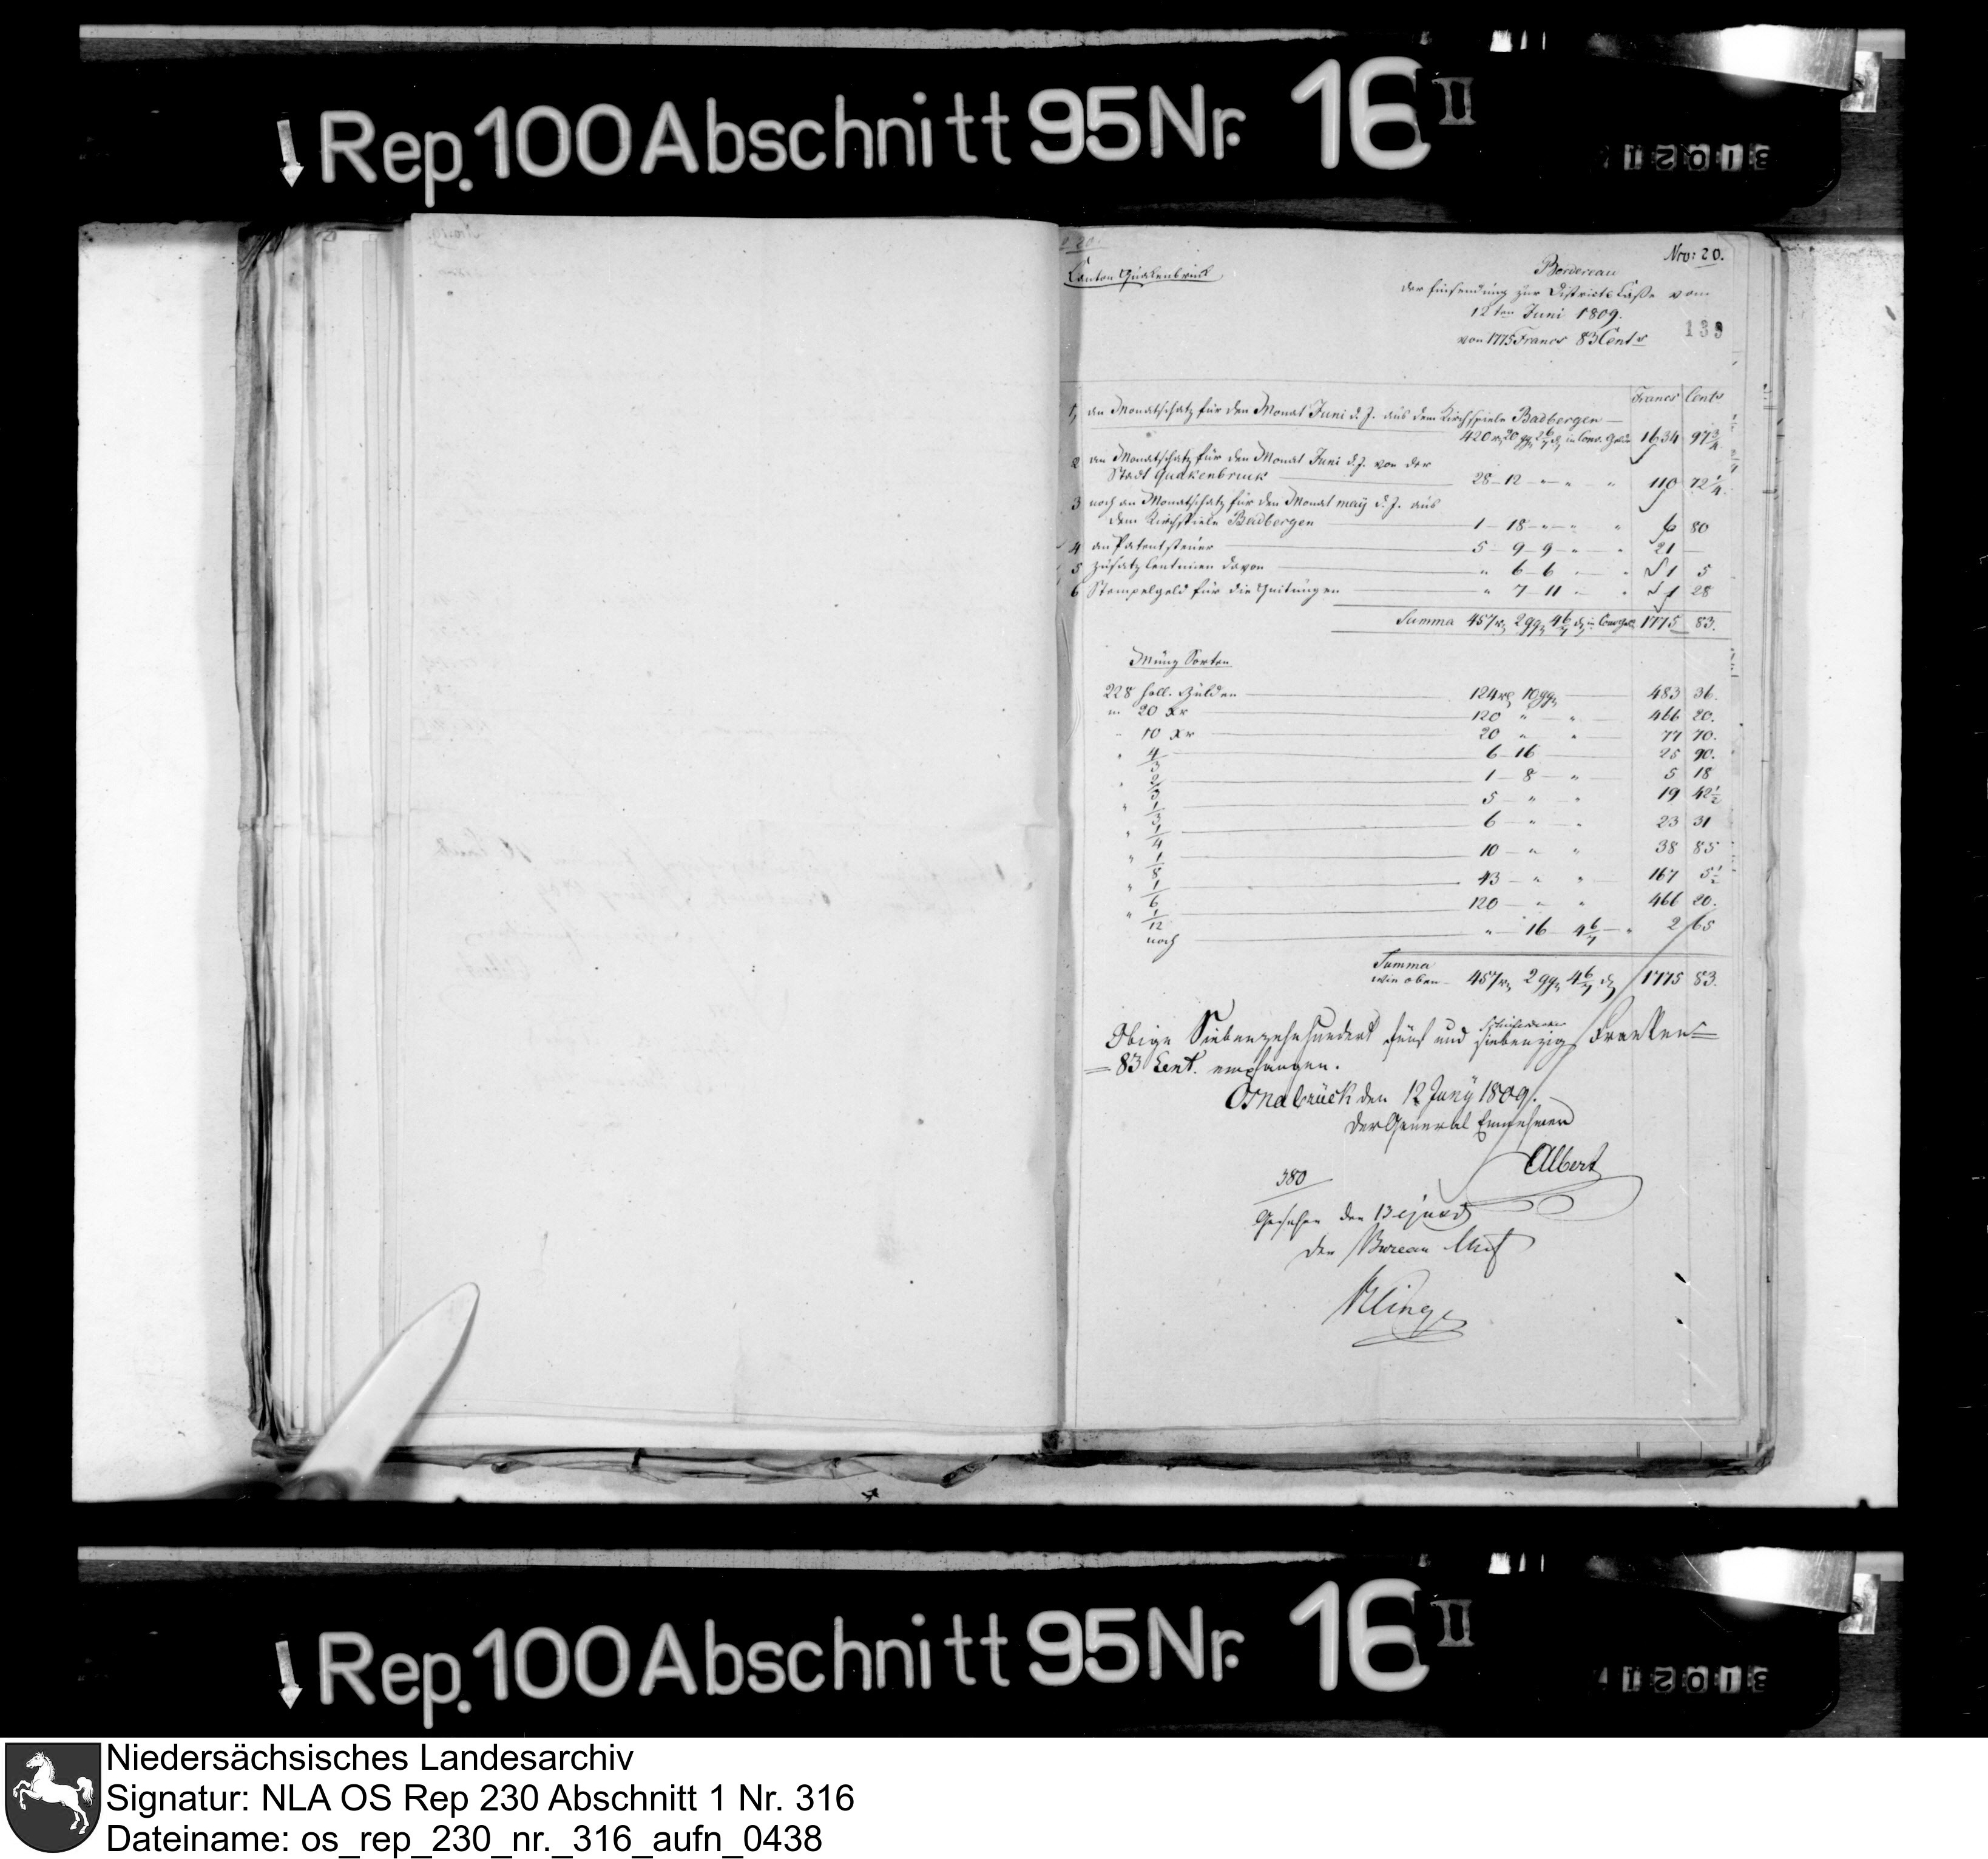 Rep. 100 Abschnitt 95 Nr. 16 II
Nro: 20.
Canton Quakenbrück
Bordereau
der Einsendung zur Districts Casse vom
12ten Juni 1809.
von 1775 Francs 83 Cents
139
Francs Cents
1, an Monatschatz für den Monat Juni d. J. aus dem Kirchspiele Badbergen
420 rt 20 ggr 2 6/7 d in Conv. Gelde 1634 97 3/4
2 an Monatschatz für den Monat Juni d. J. von der
Stadt Quakenbruck 28 - 12 - " " " 110 72 1/4
3 noch an Monatschatz für den Monat may d. J. aus
dem Kirchspiele Badbergen 1 - 18 - " - " " 6 80
4 an Patentsteuer 5 - 9 - 9 - " " 21 -
5 Zusatz Centimen davon " 6 - 6 " " 1 5
6 Stempelgeld für die Quitungen " 7 - 11 " " 1 28
Summa 457 rt 2 ggr 4 6/7 d in Conv Geld 1775 83.
Münz Sorten
228 holl. Gulden 124 rt 10 ggr 483 36.
in 20 Xr 120 " " 466 20.
" 10 Xr 20 " " 77 70.
" 4/3 6 - 16 25 90.
" 2/3 1 - 8 - " 5 18
" 1/3 5 - " " 19 42 1/2
" 1/4 6 - " " 23 31
" 1/8 10 - " " 38 85
" 1/6 43 - " " 167 5 1/2
" 1/12 120 - " " 466 20.
noch " 16 4 6/7 " 2 65
Summa
wie oben 457 rt 2 ggr 4 6/7 d 1775 83.
Obige Siebenzehnhundert fünf und siebenzig Franken
83 Cent. empfangen.
Osnabrück den 12 Juny 1809.
Der General Einnehmer
Albert
380
Gesehen den 13 ejusd
Der Bureau Chef
Klinge
Rep. 100 Abschnitt 95 Nr. 16 II
Niedersächsisches Landesarchiv
Signatur: NLA OS Rep 230 Abschnitt 1 Nr. 316
Dateiname: os_rep_230_nr._316_aufn_0438